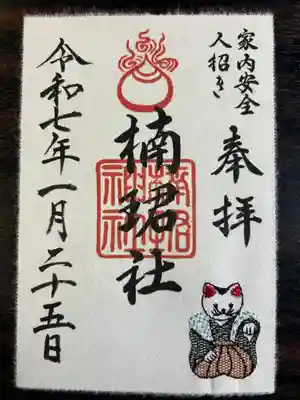 家内安全
人招き
奉拝
楠珺社
令和七年一月二十五日